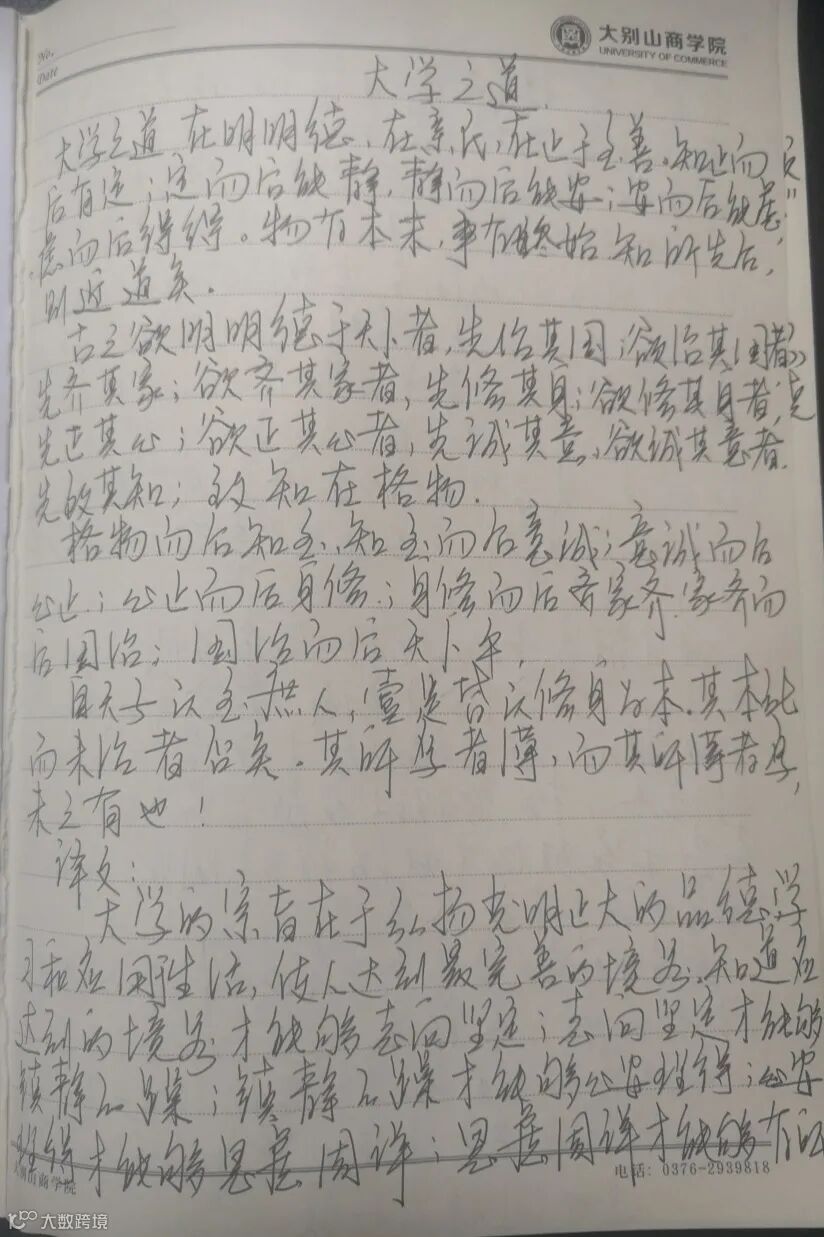 No.
Date
大别山商学院
UNIVERSITY OF COMMERCE
大学之道
大学之道 在明明德，在亲民，在止于至善。知止而
后有定；定而后能静，静而后能安；安而后能虑
虑而后得得。物有本末，事有终始 知所先后，
则近道矣。
古之欲明明德于天下者，先治其国；欲治其国者，
先齐其家；欲齐其家者，先修其身；欲修其身者，先
先正其心；欲正其心者，先诚其意，欲诚其意者，
先致其知；致知在格物．
格物而后知至，知至而后意诚；意诚而后
心正；心正而后身修；身修而后齐家齐 家齐而
后国治；国治而后天下平．
自天子以至庶人，壹是皆以修身为本．其本乱
而末治者否矣．其所厚者薄，而其所薄者厚，
未之有也！
译文：
大学的宗旨在于弘扬光明正大的品德，学
习和应用于生活，使人达到最完善的境界．知道应
达到的境界才能够志向坚定；志向坚定才能够
镇静不躁；镇静不躁才能够心安理得；心安
理得才能够思虑周详；思虑周详才能够有所
大别山商学院
电话：0376-2939818
大数跨境